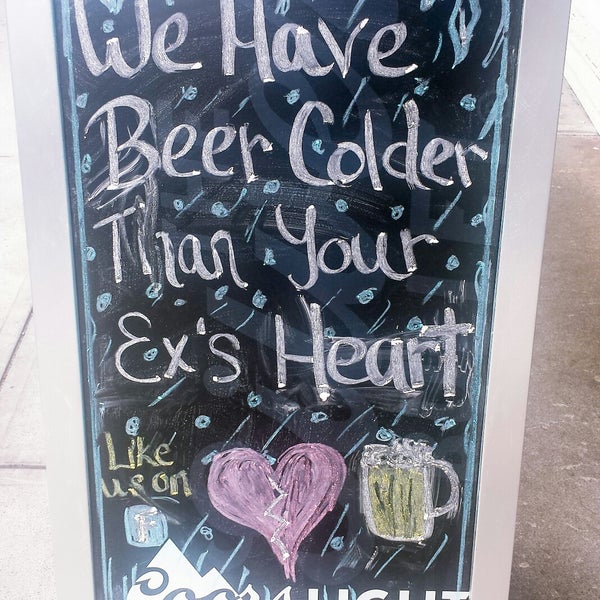 We Have
Beer Colder
Than Your
Ex's Heart
Like
us on
F
Coors LIGHT